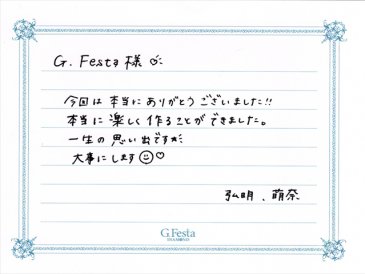 G.Festa様
今回は本当にありがとうございました!!
本当に楽しく作ることができました。
一生の思い出ですが
大事にします☺♡
弘明、萌奈
G.Festa
DIAMOND